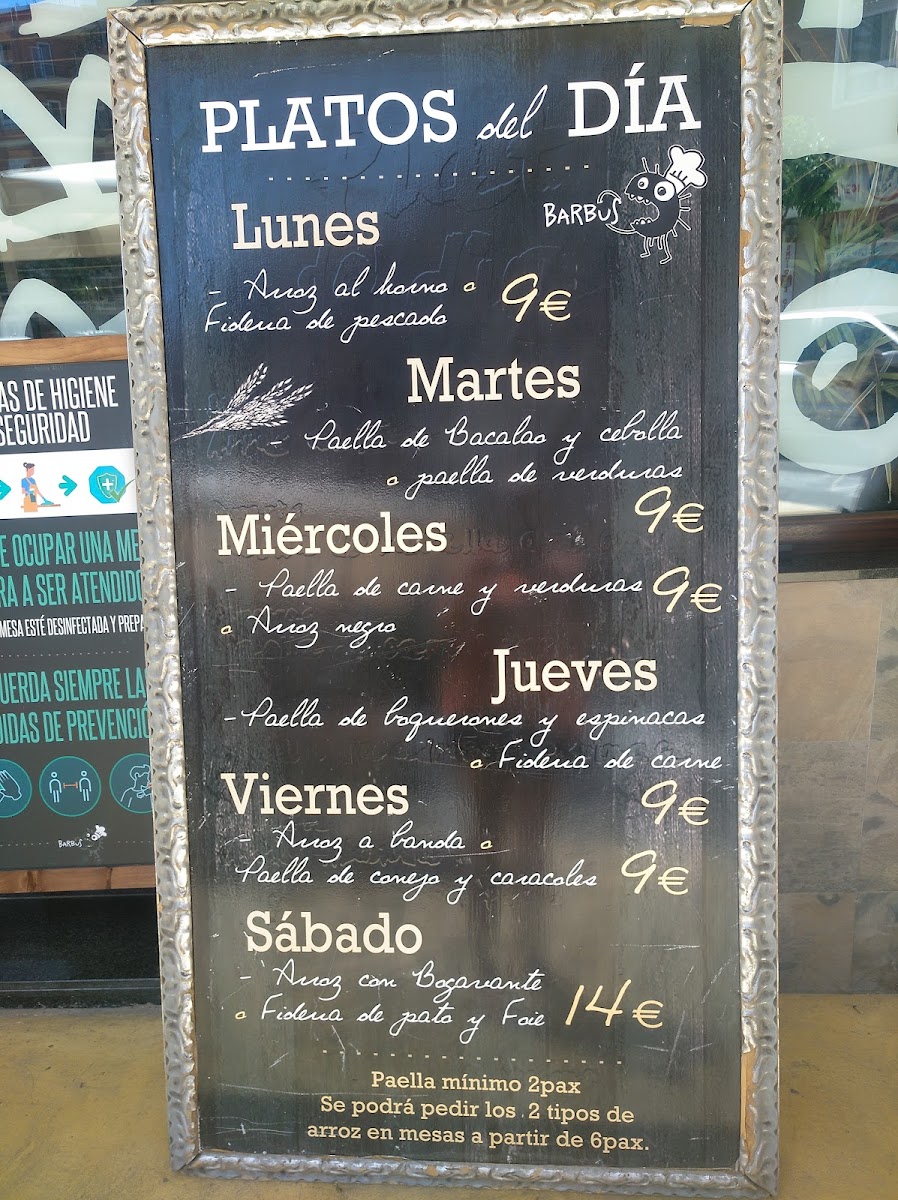 PLATOS del DÍA
BARBUS
Lunes
- Arroz al horno o
Fideua de pescado 9€
Martes
- Paella de Bacalao y cebolla
o paella de verduras
9€
Miércoles
- Paella de carne y verduras 9€
o Arroz negro
Jueves
- Paella de boquerones y espinacas
o Fideua de carne
9€
Viernes
- Arroz a banda o
Paella de conejo y caracoles 9€
Sábado
- Arroz con Bogavante
o Fideua de pato y Foie 14€
Paella mínimo 2pax
Se podrá pedir los 2 tipos de
arroz en mesas a partir de 6pax.
AS DE HIGIENE
SEGURIDAD
E OCUPAR UNA ME
RA A SER ATENDIDO
MESA ESTÉ DESINFECTADA Y PREPA
UERDA SIEMPRE LA
DIDAS DE PREVENCIÓ
BARBUS